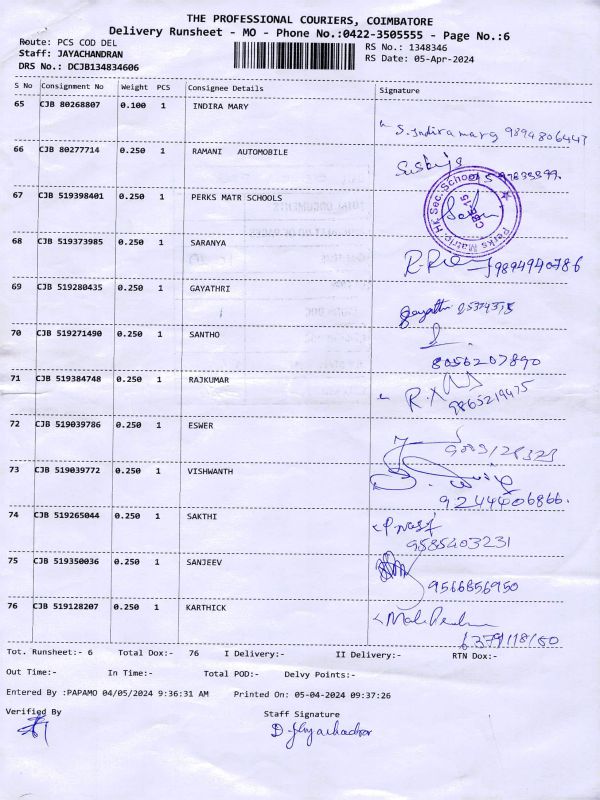 THE PROFESSIONAL COURIERS, COIMBATORE
Delivery Runsheet - MO - Phone No.:0422-3505555 - Page No.:6
Route: PCS COD DEL
RS No.: 1348346
Staff: JAYACHANDRAN
RS Date: 05-Apr-2024
DRS No.: DCJB134834606
S No Consignment No Weight PCS Consignee Details Signature
65 CJB 80268807 0.100 1 INDIRA MARY
S. Indira mary 9894806447
66 CJB 80277714 0.250 1 RAMANI AUTOMOBILE
67 CJB 519398401 0.250 1 PERKS MATR SCHOOLS
Perks Matric Hr. Sec. School
68 CJB 519373985 0.250 1 SARANYA
9894940786
69 CJB 519280435 0.250 1 GAYATHRI
Gayathri
70 CJB 519271490 0.250 1 SANTHO
8056207890
71 CJB 519384748 0.250 1 RAJKUMAR
9865219475
72 CJB 519039786 0.250 1 ESWER
73 CJB 519039772 0.250 1 VISHWANTH
9244406866.
74 CJB 519265044 0.250 1 SAKTHI
9585403231
75 CJB 519350036 0.250 1 SANJEEV
9566856950
76 CJB 519128207 0.250 1 KARTHICK
Tot. Runsheet:- 6 Total Dox:- 76 I Delivery:- II Delivery:- RTN Dox:-
Out Time:- In Time:- Total POD:- Delvy Points:-
Entered By :PAPAMO 04/05/2024 9:36:31 AM Printed On: 05-04-2024 09:37:26
Verified By Staff Signature